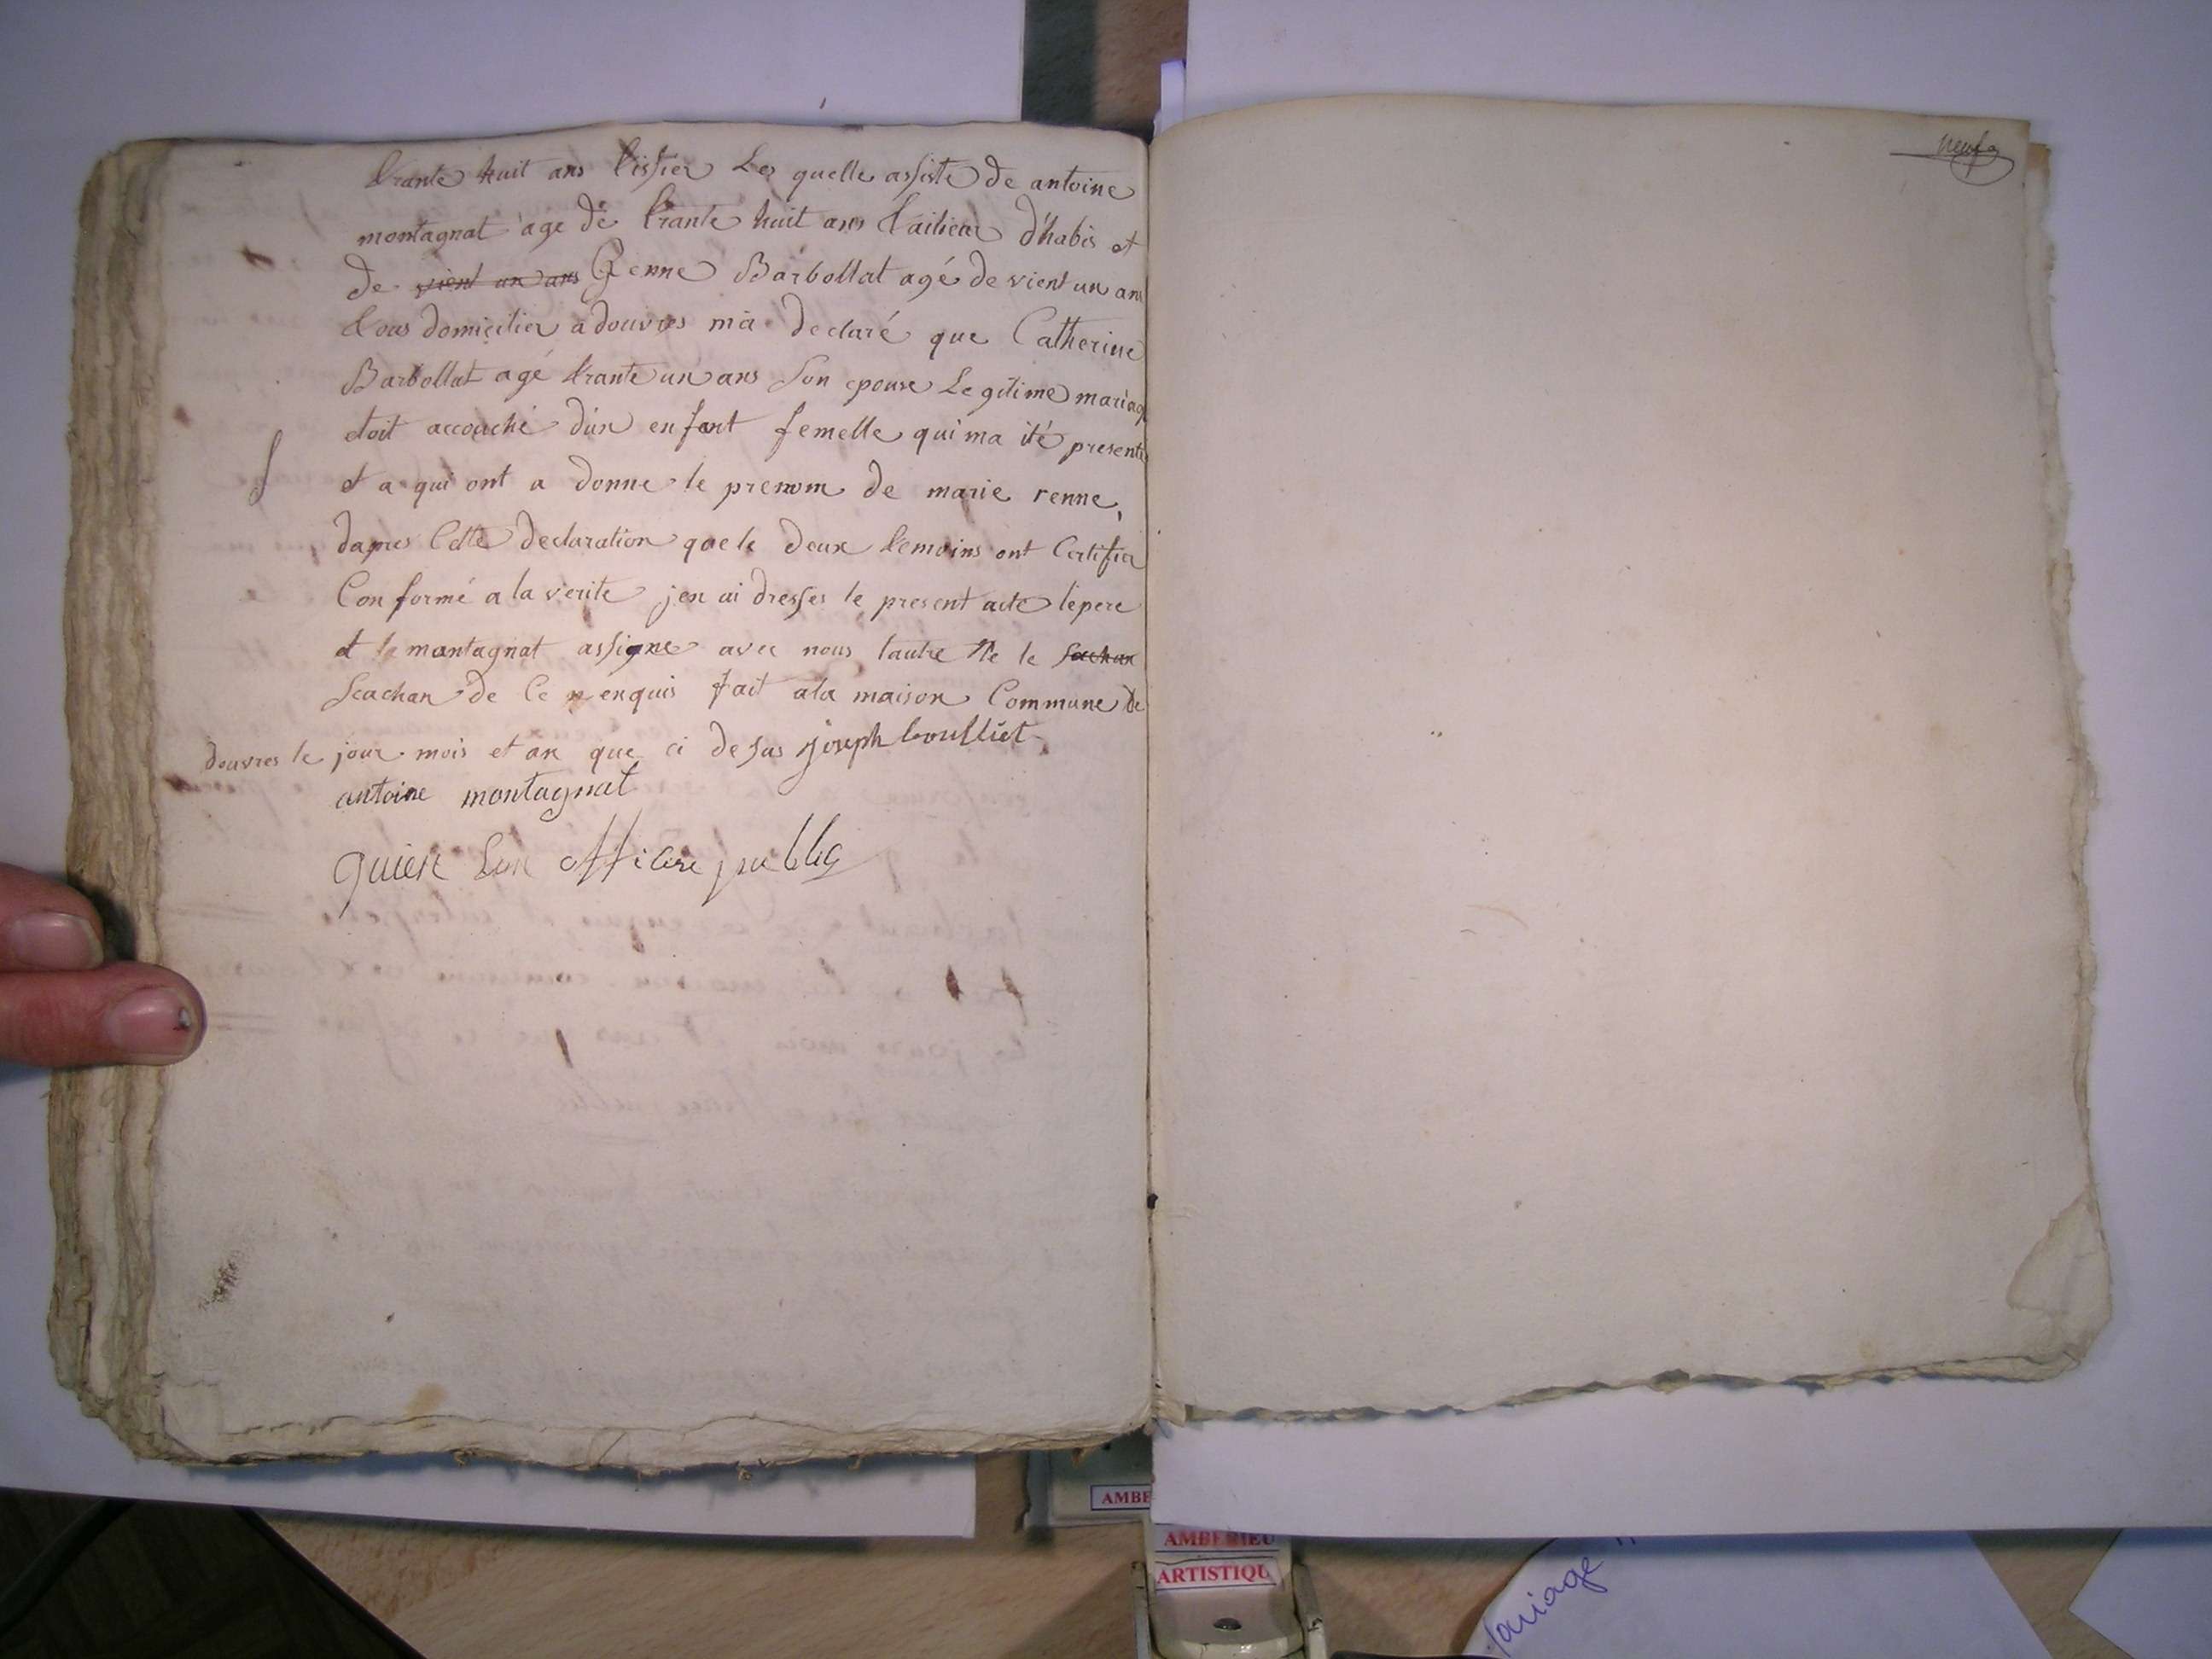 trante huit ans tissier Les quelle assisté de antoine
montagnat age de trante huit ans tailieur d'habis et
de vient un ans Renne Barbollat agé de vient un ans
tous domicilier a douvres m'a declaré que Catherine
Barbollat agé trante un ans son epouse Legitime mariag
etoit accouché d'un enfant femelle qui ma été presenté
et a qui ont a donne le prenom de marie renne,
dapres Cette declaration que le deux temoins ont Certifier
Conforme a la verite j'en ai dresses le present acte le pere
et le montagnat assigne avec nous l'autre ne le sachan
scachan de Ce n enquis fait a la maison Commune de
douvres le jour mois et an que ci desus joseph boulliet
antoine montagnat
quien officiere public
neuf
AMBE
AMBERIEU
ARTISTIQU
mariage